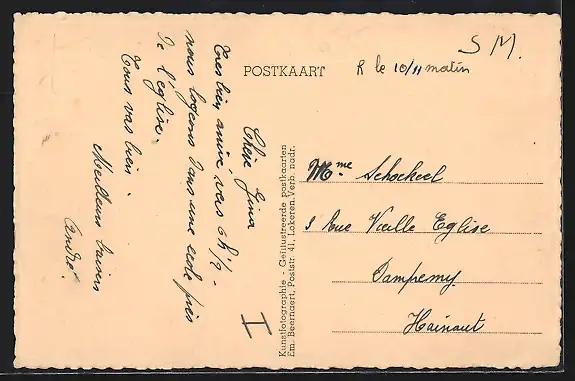 S M.
POSTKAART
R le 10/11 matin
Chère Gina
Tous bien arrivé vers 6h/2 -
nous logeons dans une ecole près
de l'église.
Tous vas bien.
Meilleurs baisers
André.
I
Kunstfotographie - Geïllustreerde postkaarten
Em. Beernaert, Poststr. 41, Lokeren. Verb. nadr.
Mme Schockeel
5 Rue Vieille Eglise
Dampremy
Hainaut